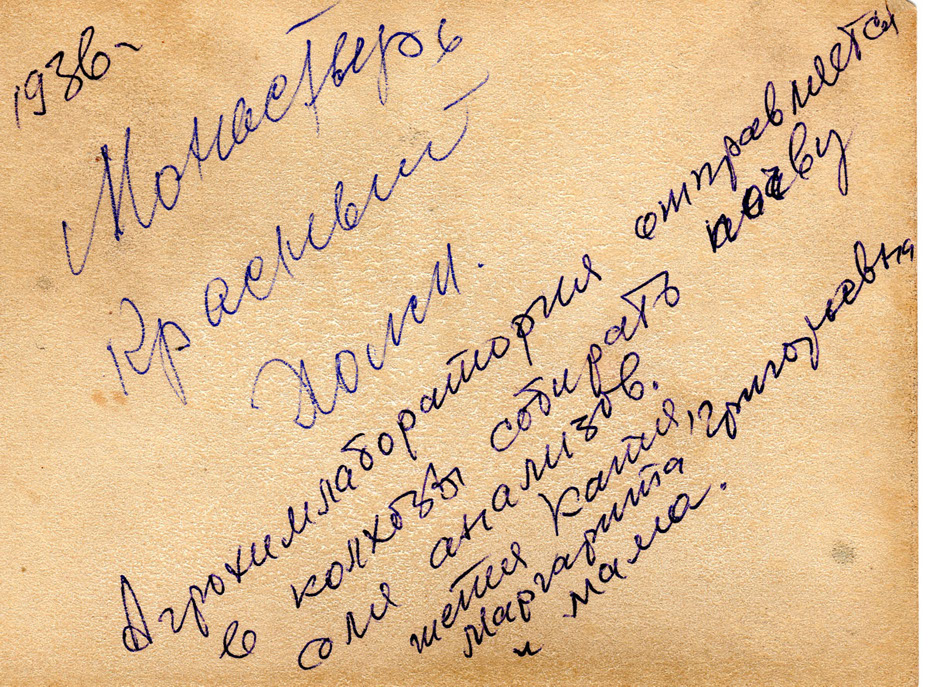 1936 г
Монастырь
Красный
Холм.
Агрохимлаборатория отправляется
в колхозы собирать почву
для анализов.
тётя Катя,
Маргарита Григорьевна
и мама.